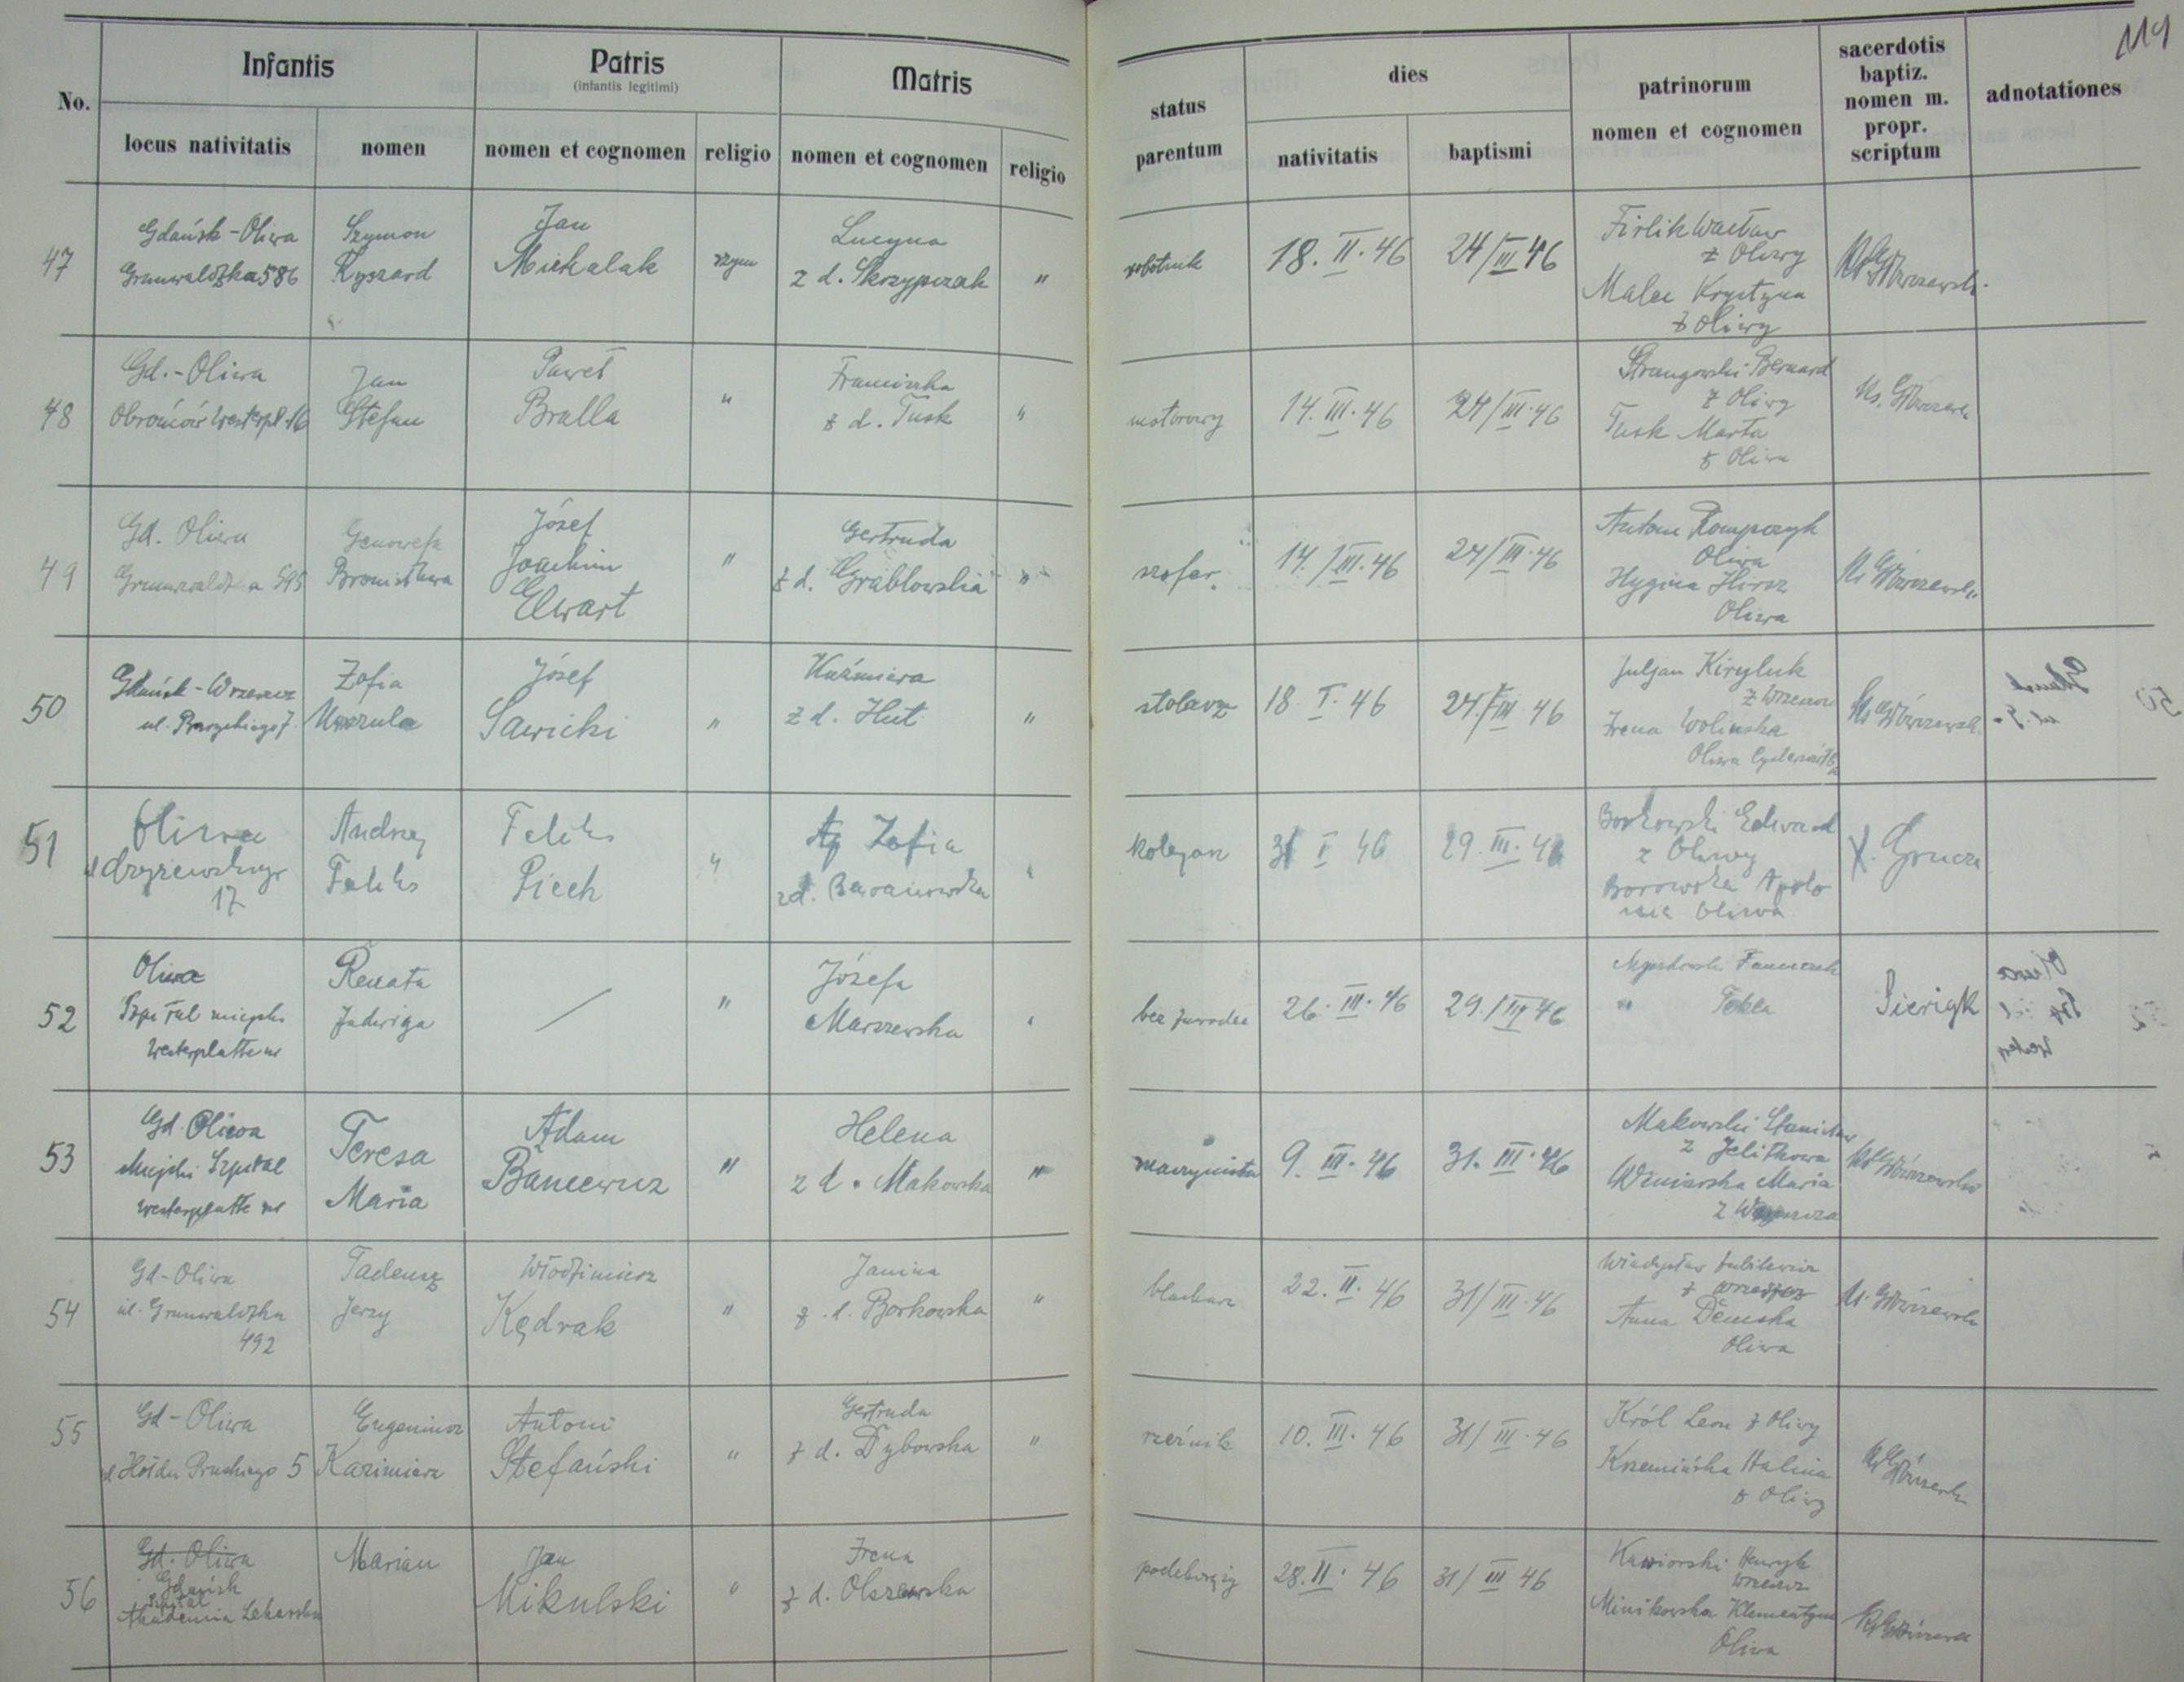 119
Infantis
Patris
(infantis legitimi)
Matris
No.
locus nativitatis
nomen
nomen et cognomen
religio
nomen et cognomen
religio
status
parentum
dies
nativitatis
baptismi
patrinorum
nomen et cognomen
sacerdotis
baptiz.
nomen m.
propr.
scriptum
adnotationes
47
Gdańsk-Oliwa
Grunwaldzka 586
Szymon
Ryszard
Jan
Michalak
rzym
Lucyna
z d. Skrzypczak
"
robotnik
18. II. 46
24/III 46
Firlik Wacław
z Oliwy
Malec Krystyna
z Oliwy
48
Gd.-Oliwa
Obrońców Westerpl. 16
Jan
Stefan
Paweł
Bralla
"
Franciszka
z d. Tusk
"
motorowy
14. III. 46
24/III. 46
Bernard
z Oliwy
Tusk Marta
z Oliwa
49
Gd. Oliwa
595
Genowefa
Bronisława
Józef
Joachim
Elwart
"
Gertruda
z d. Grablowska
"
szofer.
14./III. 46
24/III. 46
Antoni
Oliwa
Hygina Hirsz
Oliwa
50
Gdańsk-Wrzeszcz
ul.
Zofia
Urszula
Józef
Sawicki
"
Kaźmiera
z d. Hut
"
stolarz
18. I. 46
24./III 46
Juljan Kiryluk
z Wrzeszcz
Irena Wolinska
Oliwa
51
Oliwa
17
Andrzej
Feliks
Feliks
Piech
"
Zofia
zd. Baranowska
"
31 I 46
29. III. 46
Borkowski Edward
z Oliwy
Borowska Apolo
nia Oliwa
X. Grucza
52
Oliwa
Szpital miejski
Westerplatte
Renata
Jadwiga
/
"
Józefa
Marszewska
"
bez zawodu
26. III. 46
29./III 46
Franciszek
" Tekla
Sierigk
53
Gd. Oliwa
Miejski Szpital
Westerplatte
Teresa
Maria
Adam
Bancewicz
"
Helena
z d. Makowska
"
maszynista
9. III. 46
31. III. 46
Makowski Stanisław
z Jelitkowa
Winiarska Maria
z
54
Gd-Oliwa
ul. Grunwaldzka
492
Tadeusz
Jerzy
Włodzimierz
Kędrak
"
Janina
z d. Borkowska
"
blacharz
22. II. 46
31/III. 46
Władysław
z Wrzeszcz
Anna
Oliwa
55
Gd-Oliwa
ul Hołdu Pruskiego 5
Eugeniusz
Kazimierz
Antoni
Stefański
"
Gertruda
z d. Dybowska
"
rzeźnik
10. III. 46
31/III. 46
Król Leon z Oliwy
Krzemińska Halina
z Oliwy
56
Gd. Oliwa
Gdańsk
szpital
Akademia Lekarska
Marian
Jan
Mikulski
"
Irena
z d. Olszewska
podchorąży
28. II. 46
31/III 46
Kawiorski Henryk
Wrzeszcz
Minikowska Klementyna
Oliwa